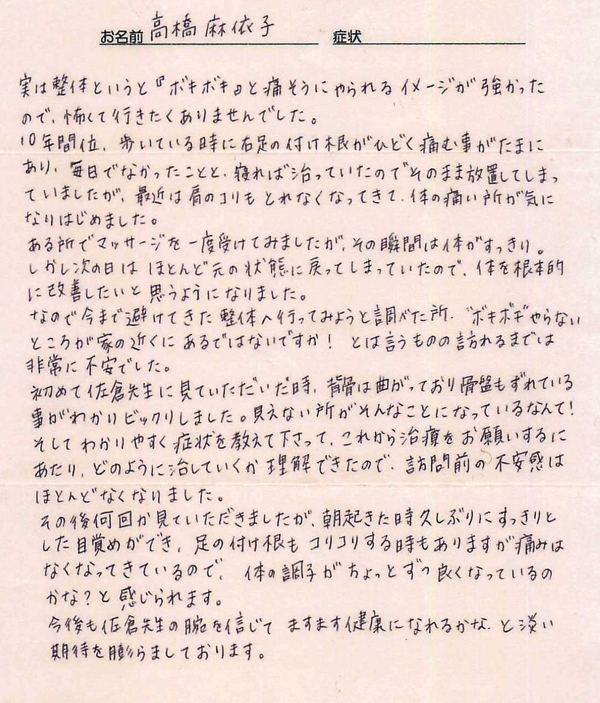 お名前 高橋麻依子 症状
実は整体というと『ボキボキ』と痛そうにやられるイメージが強かった
ので、怖くて行きたくありませんでした。
10年間位、歩いている時に右足の付け根がひどく痛む事がたまに
あり、毎日でなかったことと、寝れば治っていたのでそのまま放置してしまっ
ていましたが、最近は肩のコリもとれなくなってきて、体の痛い所が気に
なりはじめました。
ある所でマッサージを一度受けてみましたが、その瞬間は体がすっきり。
しかし次の日はほとんど元の状態に戻ってしまっていたので、体を根本的
に改善したいと思うようになりました。
なので今まで避けてきた整体へ行ってみようと調べた所、“ボキボキ”やらない
ところが家の近くにあるではないですか! とは言うものの訪れるまでは
非常に不安でした。
初めて佐倉先生に見ていただいだ時、背骨は曲がっており骨盤もずれている
事がわかりビックリしました。見えない所がそんなことになっているなんて!
そしてわかりやすく症状を教えて下さって、これから治療をお願いするに
あたり、どのように治していくか理解できたので、訪問前の不安感は
ほとんどなくなりました。
その後何回か見ていただきましたが、朝起きた時久しぶりにすっきりと
した目覚めができ、足の付け根もコリコリする時もありますが痛みは
なくなってきているので、体の調子がちょっとずつ良くなっているの
かな?と感じられます。
今後も佐倉先生の腕を信じてますます健康になれるかな、と淡い
期待を膨らましております。